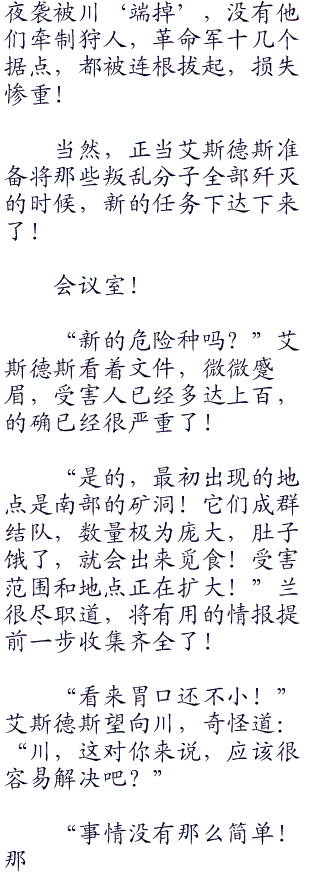 夜袭被川‘端掉’，没有他
们牵制狩人，革命军十几个
据点，都被连根拔起，损失
惨重！
当然，正当艾斯德斯准
备将那些叛乱分子全部歼灭
的时候，新的任务下达下来
了！
会议室！
“新的危险种吗？”艾
斯德斯看着文件，微微蹙
眉，受害人已经多达上百，
的确已经很严重了！
“是的，最初出现的地
点是南部的矿洞！它们成群
结队，数量极为庞大，肚子
饿了，就会出来觅食！受害
范围和地点正在扩大！”兰
很尽职道，将有用的情报提
前一步收集齐全了！
“看来胃口还不小！”
艾斯德斯望向川，奇怪道：
“川，这对你来说，应该很
容易解决吧？”
“事情没有那么简单！
那